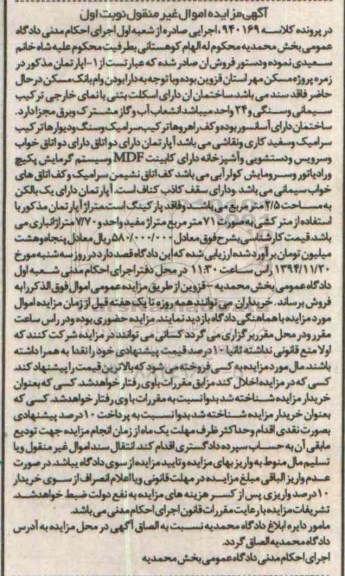 آگهی مزایده اموال غیر منقول نوبت اول
در پرونده کلاسه ۹۴۰۱۶۹ اجرایی صادره از شعبه اول اجرای احکام مدنی دادگاه
عمومی بخش محمدیه محکوم له الهام کوهستانی بطرفیت محکوم علیه شاه خانم
سعیدی نموده ودستور فروش ان صادر شده که عبارتست از ۱-اپارتمان مذکور در
زمره پروژه مسکن مهر استان قزوین بوده وبا توجه به دارا بودن وام بانک مسکن در حال
حاضر فاقد سند می باشد ساختمان ان دارای اسکلت بتنی با نمای خارجی ترکیب
سیمانی وسنگی و۲۴ واحد میباشد انشعاب آب و گاز مشترک وبرق مجزا دارد.
ساختمان دارای آسانسور بوده وکف راهروها ترکیب سرامیک وسنگ ودیوارها ترکیب
سرامیک وسفید کاری ونقاشی می باشد آپارتمان دارای دو اتاق دارای دو اتاق خواب
وسرویس ودستشویی وآشپزخانه دارای کابینت MDF وسیستم گرمایش پکیج
ورادیاتور وسرومایش کولر آبی می باشد کف اتاق نشیمن سرامیک وکف اتاق های
خواب سیمانی می باشد ودارای سقف کاذب کناف است. آپارتمان دارای یک بالکن
به مساحت ۲/۵ متر مربع می باشد وفاقد پارکینگ است متراژ آپارتمان مذکور با
استفاده از متر کشی به صورت ۷۱ متر مربع متراژ مفید واحد و۷/۷۰ متراژ انباری می
باشد. قیمت کارشناسی بشرح فوق معادل ۵۸۰/۰۰۰/۰۰۰ ریال معادل پنجاه وهشت
میلیون تومان برآورد شده ارزیابی شده که این دادگاه قصد دارد در روز سه شنبه مورخ
۱۳۹۴/۱۱/۲۰ راس ساعت ۱۱:۳۰ در محل دفتر اجرای احکام مدنی شعبه اول
دادگاه عمومی بخش محمدیه - قزوین از طریق مزایده عمومی اموال فوق الذکر را به
فروش برساند. خریداران می توانند همه روزه تا یک هفته قبل از زمان مزایده اموال
مورد مزایده با هماهنگی دادگاه بازدید نمایند. مزایده حضوری بوده ودر راس ساعت
مقرر ودر محل مقرر برگزاری می گردد کسانی می توانند در مزایده شرکت کنند که
اولا منع قانونی نداشته ثانیا ۱۰ درصد قیمت پیشنهادی خود را نقدا به همراه داشته
باشند. مال مورد مزایده به کسی فروخته می شود که بالاترین قیمت را پیشنهاد کند.
کسی که در مزایده اخلال کند مزابق مقررات باوی رفتار خواهد شد. کسی که بعنوان
خریدار مزایده شناخته شد بدوا نسبت به مقررات باوی رفتار خواهد شد. کسی که
بعنوان خریدار مزایده شناخته شد بدوا نسبت به پرداخت ۱۰ درصد پیشنهادی
بصورت نقدی اقدام وحداکثر ظرف مهلت یک ماه از زمان انجام مزایده جهت تودیع
مابقی آن به حساب سپرده دادگستری اقدام کند. انتقال سند اموال غیر منقول ویا
تسلیم مال منوط به واریز بهای مزایده وتایید مزایده از سوی دادگاه یباشد. در صورت
عدم واریز الباقی مبلغ مزایده در مهلت قانونی ویا اعلام انصراف از سوی خریدار
۱۰ درصد واریزی پس از کسر هزینه های مزایده به نفع دولت ضبط خواهد شد.
تشریفات مزایده با رعایت مقررات قانون اجرای احکام مدنی می باشد.
مامور دایره ابلاغ دادگاه محمدیه نسبت به الصاق آگهی در محل مزایده به آدرس
دادگاه محمدیه الصاق گردد.
اجرای احکام مدنی دادگاه عمومی بخش محمدیه